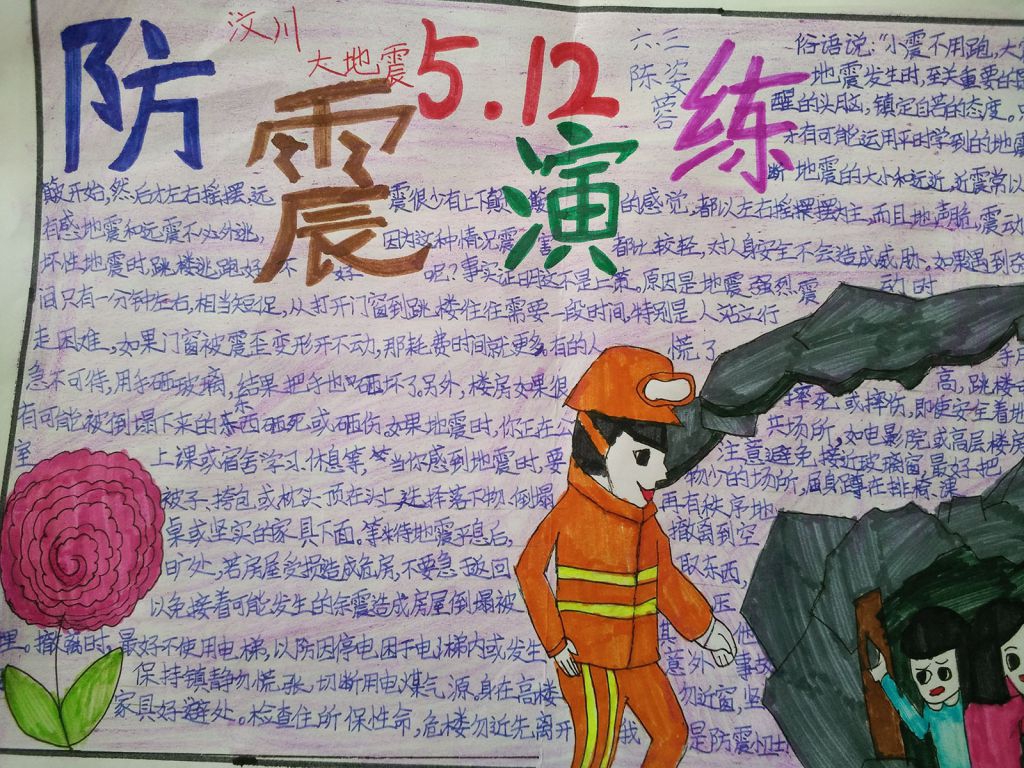 防震演练
汶川
大地震
5.12
六三
陈姿蓉
俗语说:“小震不用跑,大
地震发生时,至关重要的
醒的头脑,镇定自若的态度。
才有可能运用平时学到的地震
断地震的大小和远近。近震常以
颠开始,然后才左右摇摆,远震很少有上下颠簸的感觉,都以左右摇摆为主,而且地声脆,震动
有感地震和远震不必外逃,因为这种情况震害都比较轻,对人身安全不会造成威胁。如果遇到
坏性地震时,跳楼逃跑好不好呢?事实证明这不是上策。原因是地震强烈震动时
间只有一分钟左右,相当短促,从打开门窗到跳楼往往需要一段时间,特别是人站立行
走困难,如果门窗被震歪变形开不动,那耗费时间就更多有的人慌了手
急不可待,用手砸玻璃,结果把手也砸坏了另外,楼房如果很高,跳楼
有可能被倒塌下来的东西砸死或砸伤如果地震时,你正在公共场所,如电影院或高层楼房
摔死或摔伤,即使安全着地
室上课或宿舍学习、休息等,当你感到地震时,要注意避免接近玻璃窗,最好把
被子、挎包或枕头顶在头上选择落下物倒塌物少的场所,屈身蹲在排椅、
桌或坚实的家具下面。等待地震平息后,再有秩序地撤离到空
旷处,若房屋受损造成危房,不要急返回取东西,
以免接着可能发生的余震造成房屋倒塌被压
撤离时,最好不使用电梯,以防因停电困于电梯内或发生其他
意外事故
保持镇静勿慌张,切断用电煤气源,身在高楼勿近窗,坚
家具好避处。检查住所保性命,危楼勿近先离开我是防震小卫士